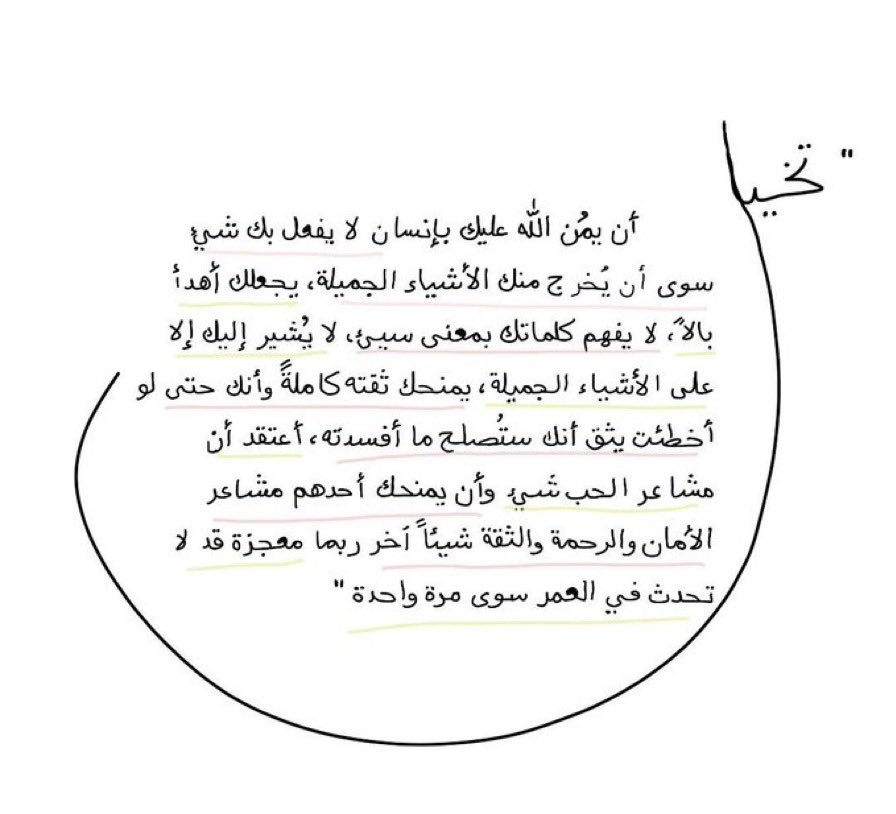 " تخيل
أن يمُن الله عليك بإنسان لا يفعل بك شيئ
سوى أن يُخرج منك الأشياء الجميلة، يجعلك أهدأ
بالاً، لا يفهم كلماتك بمعنى سيئ، لا يُشير إليك إلا
على الأشياء الجميلة، يمنحك ثقته كاملةً وأنك حتى لو
أخطئت يثق أنك ستُصلح ما أفسدته، أعتقد أن
مشاعر الحب شيئ وأن يمنحك أحدهم مشاعر
الأمان والرحمة والثقة شيئاً آخر ربما معجزة قد لا
تحدث في العمر سوى مرة واحدة "